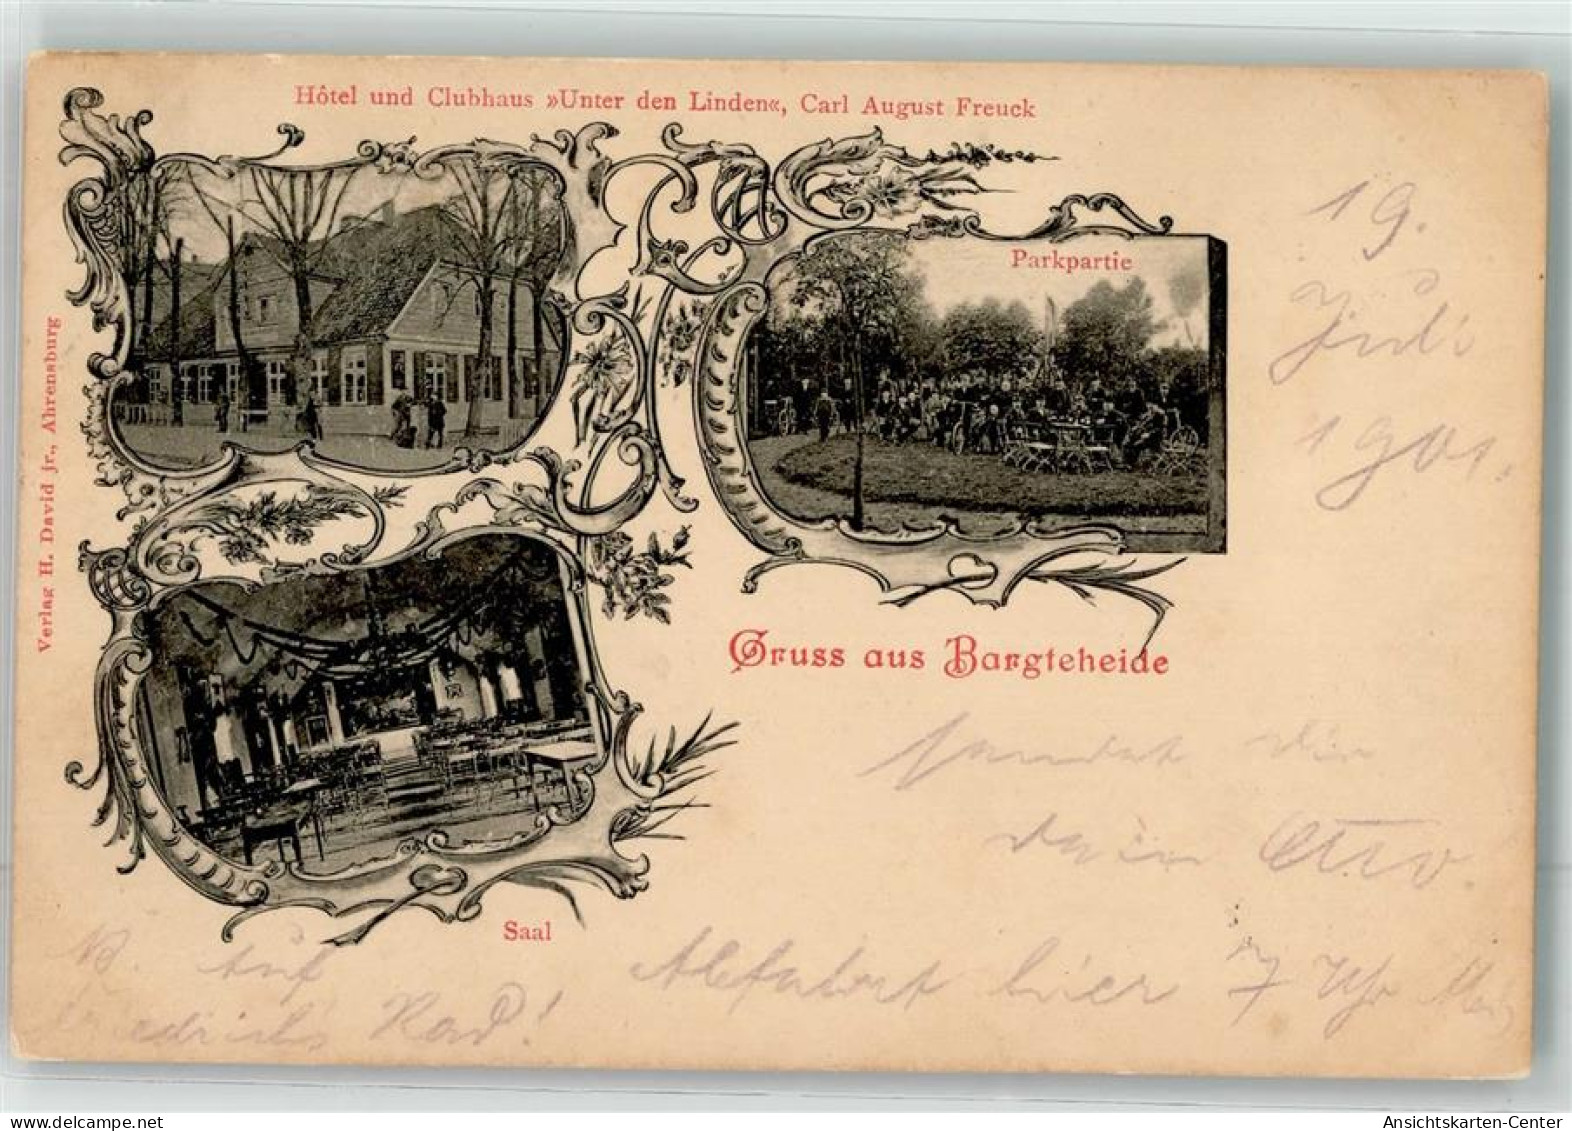 Hôtel und Clubhaus »Unter den Linden«, Carl August Freuck
Parkpartie
19.
Juli
1901.
Verlag H. David jr., Ahrensburg
Gruss aus Bargteheide
sendet dir
dein Otto.
Saal
NB. Auf
Rad!
Abfahrt hier 7 Uhr
Ansichtskarten-Center
delcampe.net